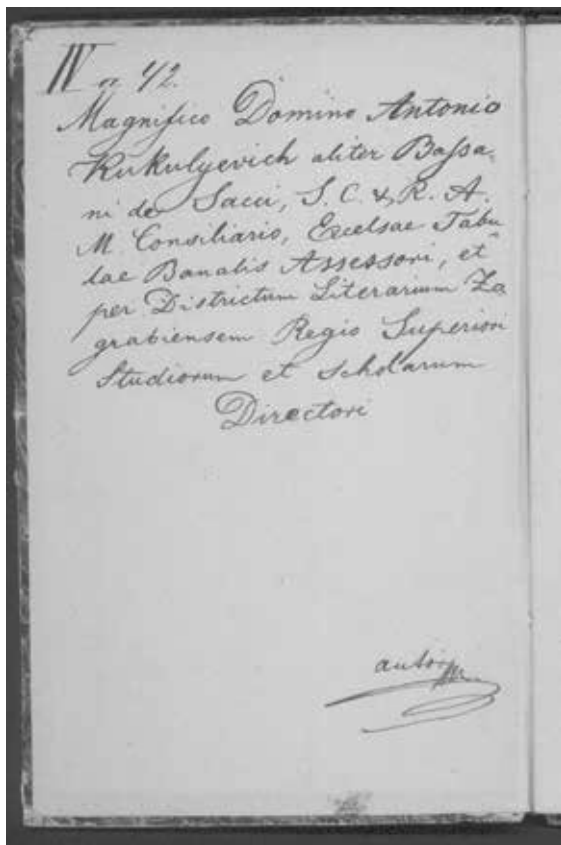 IV or 42.
Magnifico Domino Antonio
Kukulyevich aliter Bassa-
ni de Sacci, S. C. & R. A.
M. Consiliario, Excelsae Tabu
lae Banalis Assessori, et
per Districtum Literarium Za
grabiensem Regio Superiori
Studiorum et Scholarum
Directori
autor